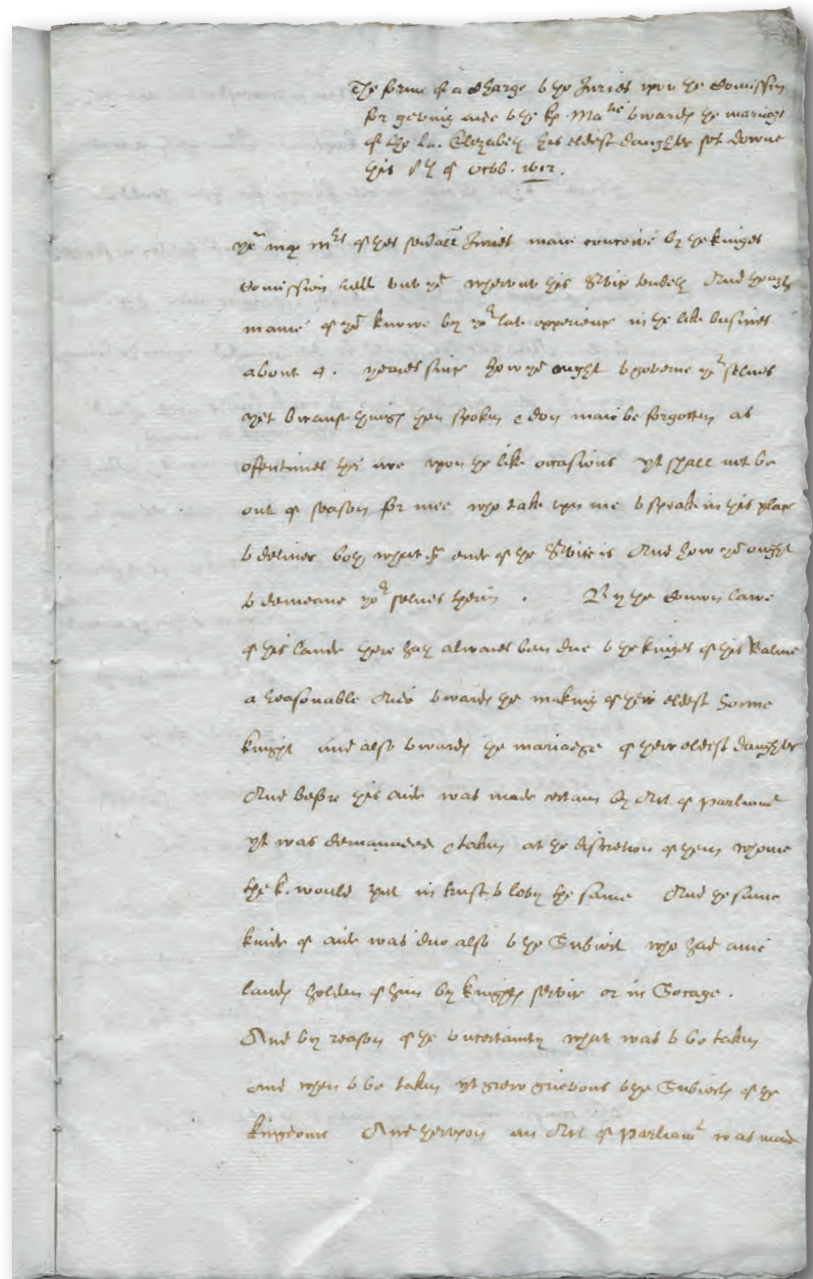 The forme of a Charge to the Juries upon the Comission
for geting aide to the k. Matie towards the mariage
of the La. Elezabeth his eldest daughter set downe
this of Octob. 1612.
yor mrs of thes severall Juries maie conceive by the kinges
Comission wherunto this Service tendeth And though
manie of you knowe by yor late experience in the like busines
about 4. yeares since how you ought to governe yor selves
yet because things then spoken & don maie be forgotten as
oftentimes they are upon the like occasions yt shall not be
out of season for mee who take upon me to speake in this place
to deliver both what the ende of the Service is And how you ought
to demeane yor selves therin . By the Comon lawe
of this lande there hath alwaies ben due to the kinges of this Realme
a reasonable Aide towards the making of their eldest Sonne
knight and also towards the mariadge of their eldest daughter
And before this Aide was made certain by Act of parliamt
yt was demaunded & taken at the discretion of them whome
the k. would put in trust to levy the same And the same
kinde of aide was due also to the Subiect who had anie
lands holden of him by knights service or in Socage .
And by reason of the uncertainty what was to be taken
and when to be taken yt grew grievous to the Subiects of the
kingdome And therupon an Act of parliamt was made